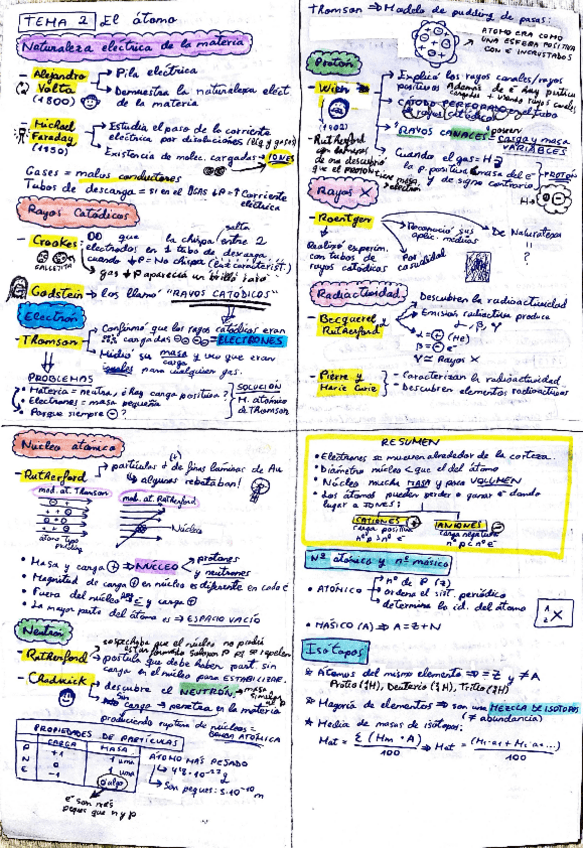 TEMA 2 El átomo
Naturaleza eléctrica de la materia
- Alejandro Volta (1800)
Pila eléctrica
Demuestra la naturaleza eléct de la materia
- Michael Faraday
Estudia el paso de la corriente eléctrica por disoluciones (líq y gases)
Existencia de molec. cargadas → IONES
Gases = malos conductores
Tubos de descarga = si en el GAS ↓P = ↑ corriente eléctrica
Rayos Catódicos
- Crookes:
que la chispa salta entre 2
electrodos en 1 tubo de descarga
cuando ↓P = No chispa (luz caracterist.)
gas ↓P aparecía un
GALLETITA
Godstein → los llamó "RAYOS CATÓDICOS"
Electrón
- Thomson
Confirmó que los rayos catódicos eran
cargadas ⊖⊖⊖ = ELECTRONES
Midió su masa/carga y vio que eran
iguales para cualquier gas.
PROBLEMAS
• Materia = neutra, ¿Hay carga positiva?
• Electrones = masa pequeña
• Porque siempre ⊖?
SOLUCIÓN
M. atómico de Thomson
Thomson ⇒ Modelo de pudding de pasas:
ÁTOMO ERA COMO
UNA ESFERA POSITIVA
CON e⁻ INCRUSTADOS
Protón
- Wien
(1902)
Explicó los rayos canales/rayos
positivos
CÁTODO PERFORADO en el tubo
rayos catódicos
"RAYOS CANALES" poseen carga y masa VARIABLES
- Rutherford
Cuando el gas = H2
la p positiva = masa del e⁻
y de signo contrario
PROTÓN
Rayos X
- Roentgen
Reconoció sus aplic. médicas
De Naturaleza
=
?
Realizó experim.
con tubos de
rayos catódicos
Por casualidad
Radiactividad
- Becquerel
Rutherford
Descubren la radioactividad
Emisión radiactiva produce
α, β, γ
α = ⊕ (He)
β = ⊖ e⁻
γ = Rayos X
- Pierre y Marie Curie
- Caracterizan la radioactividad
- Descubren elementos radioactivos
Núcleo atómico
- Rutherford → partículas + de finas laminas de Au
↳ algunas rebotaban!
mod. at. Thomson
mod. at. Rutherford
átomo tipo pudding
Núcleo
• Masa y carga ⊕ ⇒ NÚCLEO
protones y neutrones
• Magnitud de carga ⊕ en núcleo es diferente en cada e
• Fuera del núcleo hay e⁻ y carga ⊖
• La mayor parte del átomo es ⇒ ESPACIO VACÍO
Neutrón
- Rutherford
sospechaba que el núcleo no podía
estar formado solo por p pq se repelen
postula que debe haber part. sin
carga en el núcleo para ESTABILIZAR.
- Chadwick
descubre el NEUTRÓN
masa similar al p
Sin carga → penetra en la materia
produciendo ruptura de núcleos =
BOMBA ATÓMICA
PROPIEDADES DE PARTÍCULAS
CARGA MASA
P +1 1 uma
N 0 1 uma
E -1 0'algo
e⁻ son más
peques que n y p
ÁTOMO MÁS PESADO
↳ Son peques: 3·10⁻¹⁰ m
RESUMEN
• Electrones se mueven alrededor de la corteza.
• Diámetro núcleo < que el del átomo
• Núcleo mucha MASA y poco VOLUMEN
• Los átomos pueden perder o ganar e⁻ dando
lugar a IONES:
CATIONES ⊕
carga positiva
nº p > nº e⁻
ANIONES ⊖
carga negativa
nº p < nº e⁻
Nº atómico y nº másico
• ATÓMICO
nº de P (Z)
ordena el sist. periódico
determina la id. del átomo
• MÁSICO (A) ⇒ A = Z + N
Isótopos
★ Átomos del mismo elemento ⇒ = Z y ≠ A
Protio (¹₁H), Deuterio (²₁H), Tritio (³₁H)
★ Mayoría de elementos ⇒ son una MEZCLA DE ISÓTOPOS
(≠ abundancia)
★ Media de masas de isótopos:
Mat = Σ (Mm · A) / 100 ⇒ Mat = (M₁·a₁ + M₂·a₂...) / 100